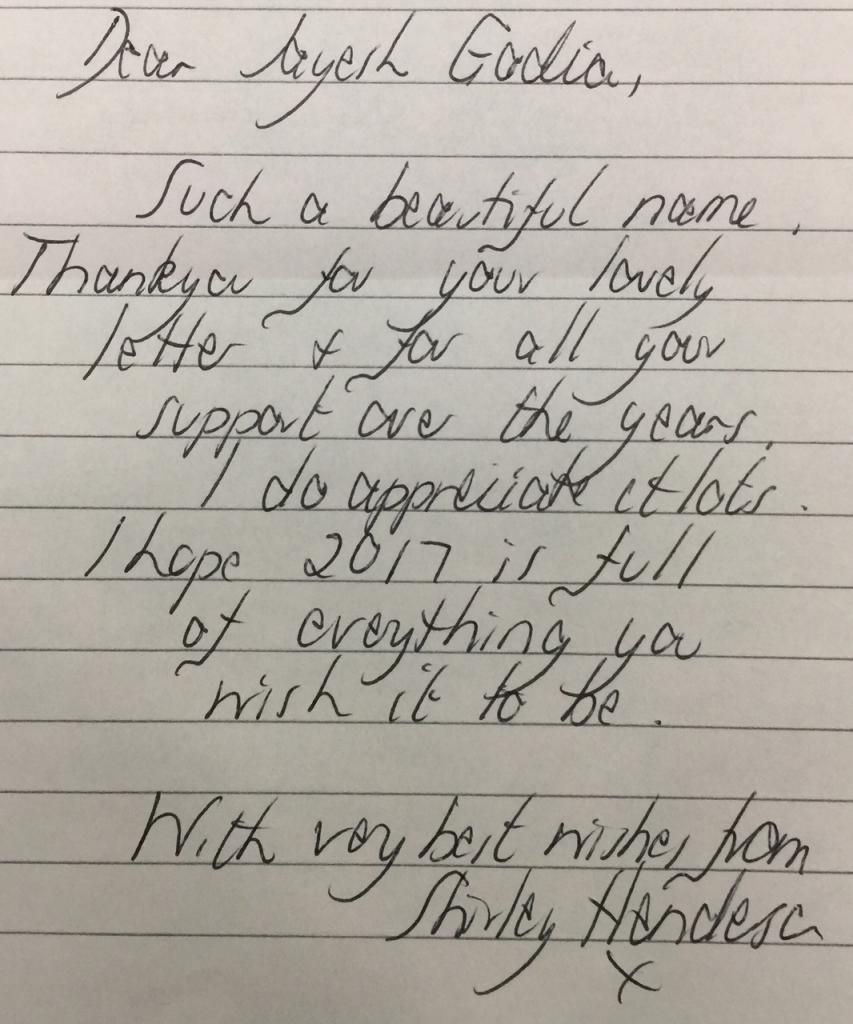 Dear Jayesh Godia,
Such a beautiful name.
Thankyou for your lovely
letter & for all your
support over the years.
I do appreciate it lots.
I hope 2017 is full
of everything you
wish it to be.
With very best wishes from
Shirley Henderson
x